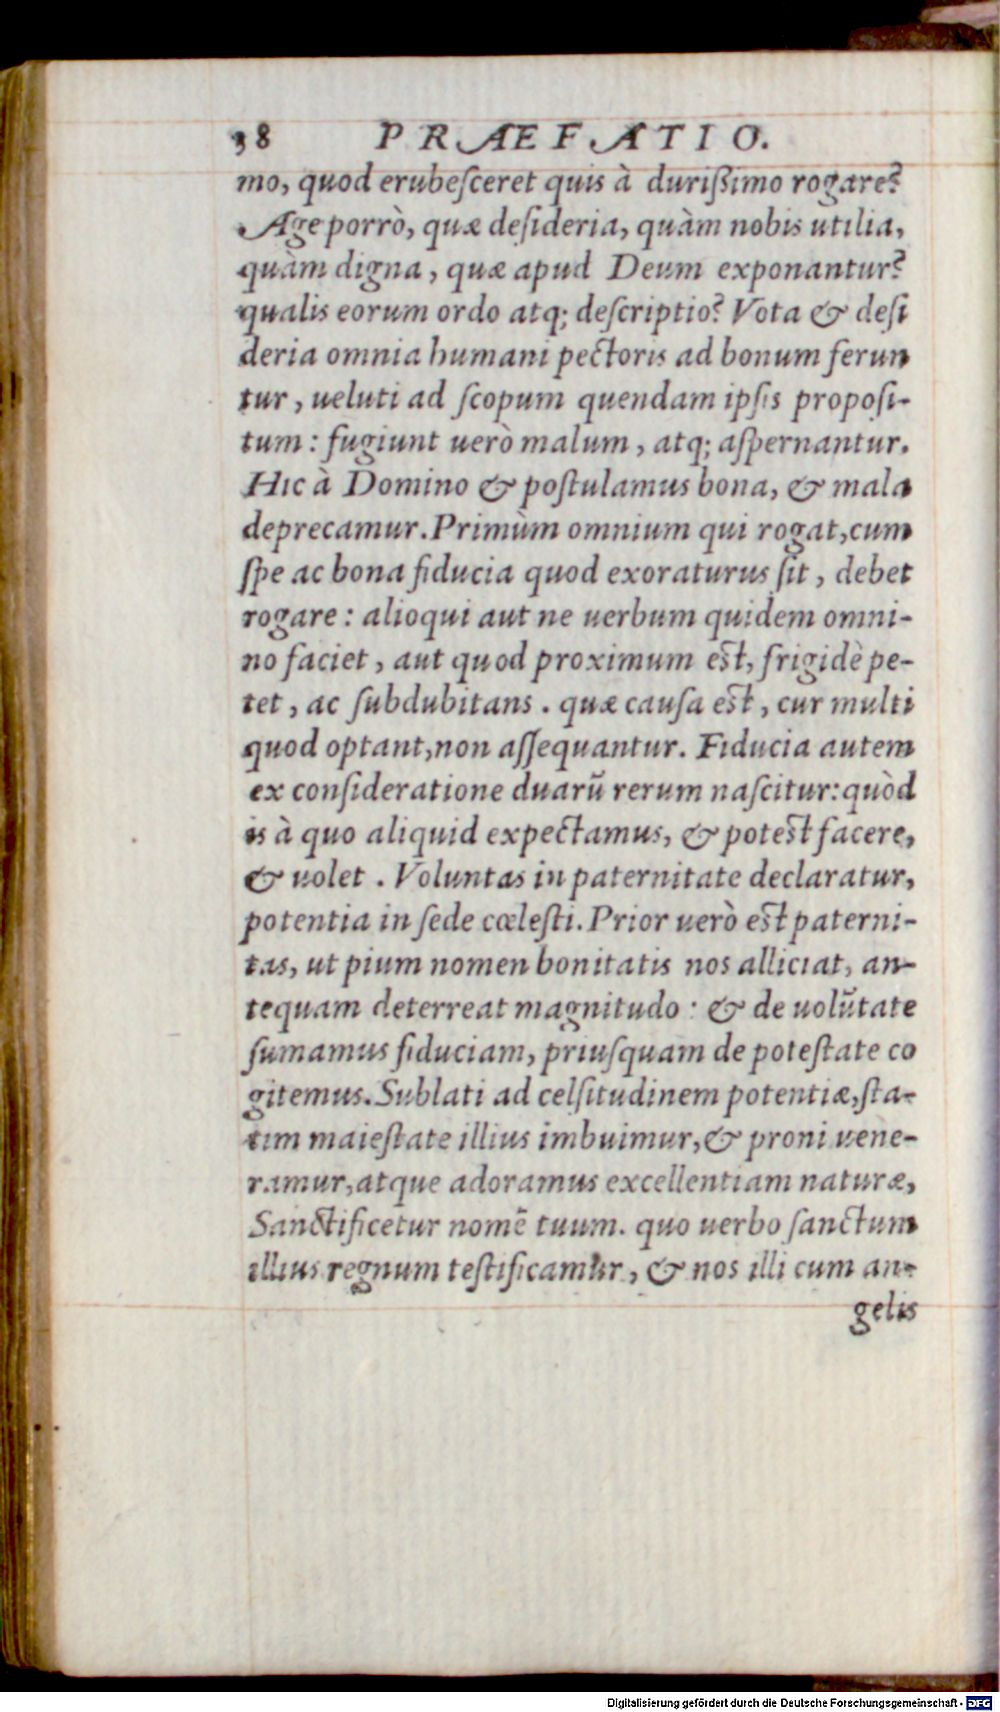 38 PRÆFATIO.
mo, quod erubeſceret quis à durißimo rogare?
Age porrò, quæ deſideria, quàm nobis utilia,
quàm digna, quæ apud Deum exponantur?
qualis eorum ordo atq; deſcriptio? Vota & deſi
deria omnia humani pectoris ad bonum ferun
tur, ueluti ad ſcopum quendam ipſis propoſi-
tum: fugiunt uerò malum, atq; aſpernantur.
Hic à Domino & poſtulamus bona, & mala
deprecamur. Primùm omnium qui rogat, cum
ſpe ac bona fiducia quod exoraturus ſit, debet
rogare: alioqui aut ne uerbum quidem omni-
no faciet, aut quod proximum eſt, frigidè pe-
tet, ac ſubdubitans. quæ cauſa eſt, cur multi
quod optant, non aſſequantur. Fiducia autem
ex conſideratione duarũ rerum naſcitur: quòd
is à quo aliquid expectamus, & poteſt facere,
& uolet. Voluntas in paternitate declaratur,
potentia in ſede cœleſti. Prior uerò eſt paterni-
tas, ut pium nomen bonitatis nos alliciat, an-
tequam deterreat magnitudo: & de uolũtate
ſumamus fiduciam, priuſquam de poteſtate co
gitemus. Sublati ad celſitudinem potentiæ, ſta-
tim maieſtate illius imbuimur, & proni uene-
ramur, atque adoramus excellentiam naturæ,
Sanctificetur nomẽ tuum. quo uerbo ſanctum
illius regnum teſtificamur, & nos illi cum an-
gelis
Digitalisierung gefördert durch die Deutsche Forschungsgemeinschaft - DFG